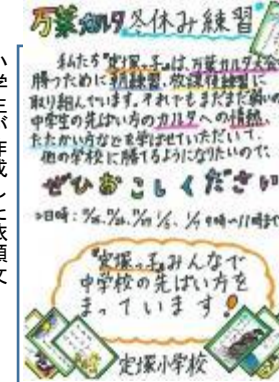 万葉カルタ冬休み練習
私たち"定塚っ子"は、万葉カルタ大会で
勝つために朝練習、放課後練習に
取り組んでいます。それでもまだまだ
中学生の先ぱい方のカルタへの情熱、
たたかい方などを学ばせていただいて、
他の学校に勝てるようになりたいので、
ぜひおこしください
日時:
"定塚っ子"みんなで
中学校の先ぱい方を
まっています!
定塚小学校
小学生が作成した依頼文